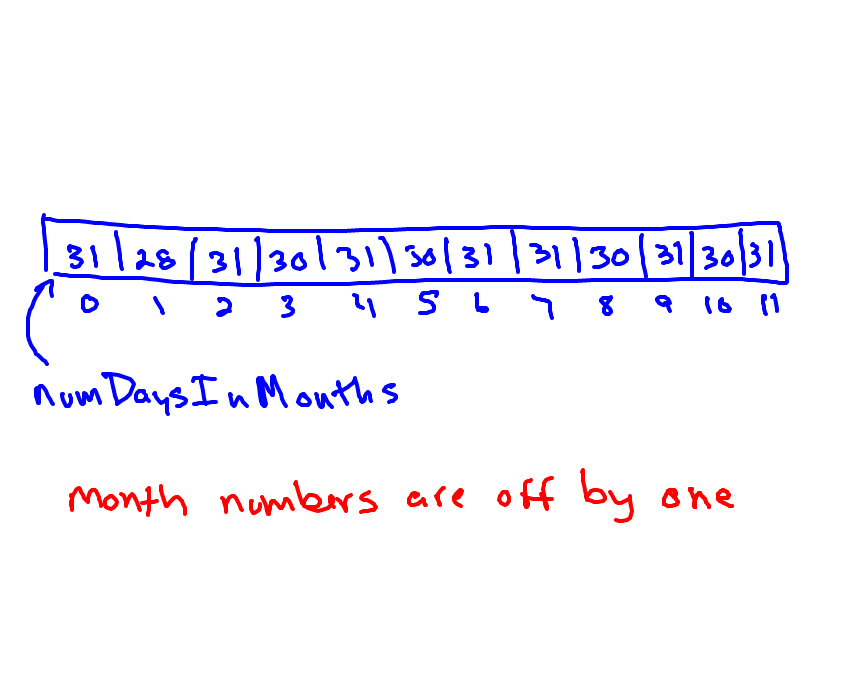 31 28 31 30 31 30 31 31 30 31 30 31
0 1 2 3 4 5 6 7 8 9 10 11
numDaysInMonths
Month numbers are off by one